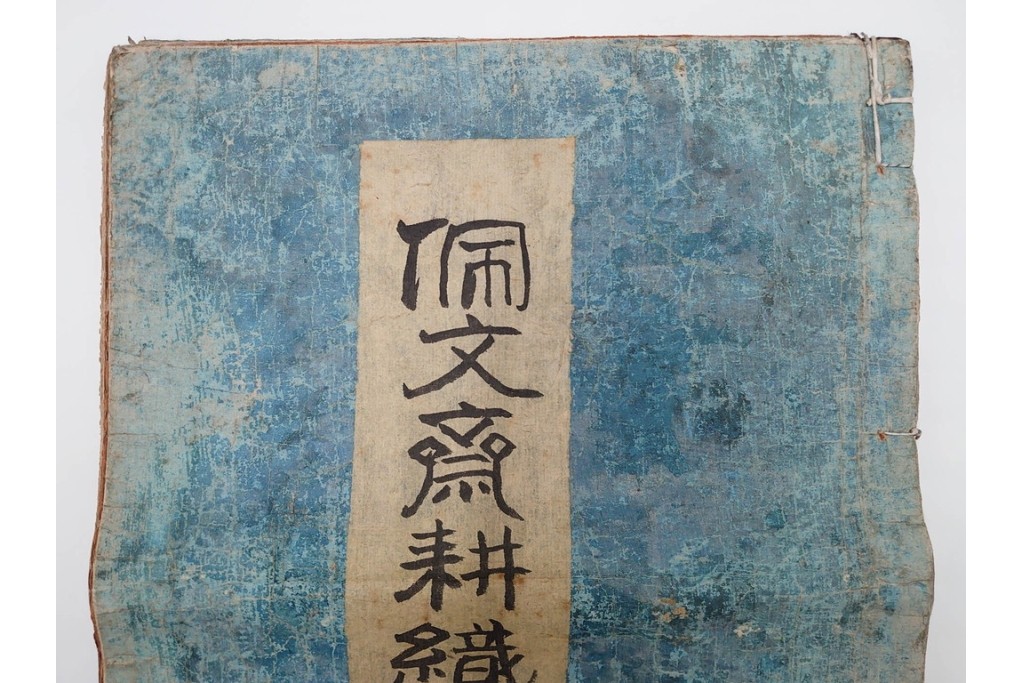 佩文齋耕織